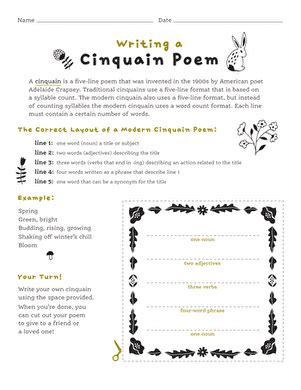 Name
Date
Writing a
Cinquain Poem
A cinquain is a five-line poem that was invented in the 1900s by American poet
Adelaide Crapsey. Traditional cinquains use a five-line format that is based on
a syllable count. The modern cinquain also uses a five-line format, but instead
of counting syllables the modern cinquain uses a word count format. Each line
must contain a certain number of words.
The Correct Layout of a Modern Cinquain Poem:
line 1: one word (noun) a title or subject
line 2: two words (adjectives) describing the title
line 3: three words (verbs that end in -ing) describing an action related to the title
line 4: four words written as a phrase that describe line 1
line 5: one word that can be a synonym for the title
Example:
Spring
Green, bright
Budding, rising, growing
Shaking off winter's chill
Bloom
Your Turn!
Write your own cinquain
using the space provided.
When you're done, you
can cut out your poem
to give to a friend or
a loved one!
one noun
two adjectives
three verbs
four-word phrase
one noun